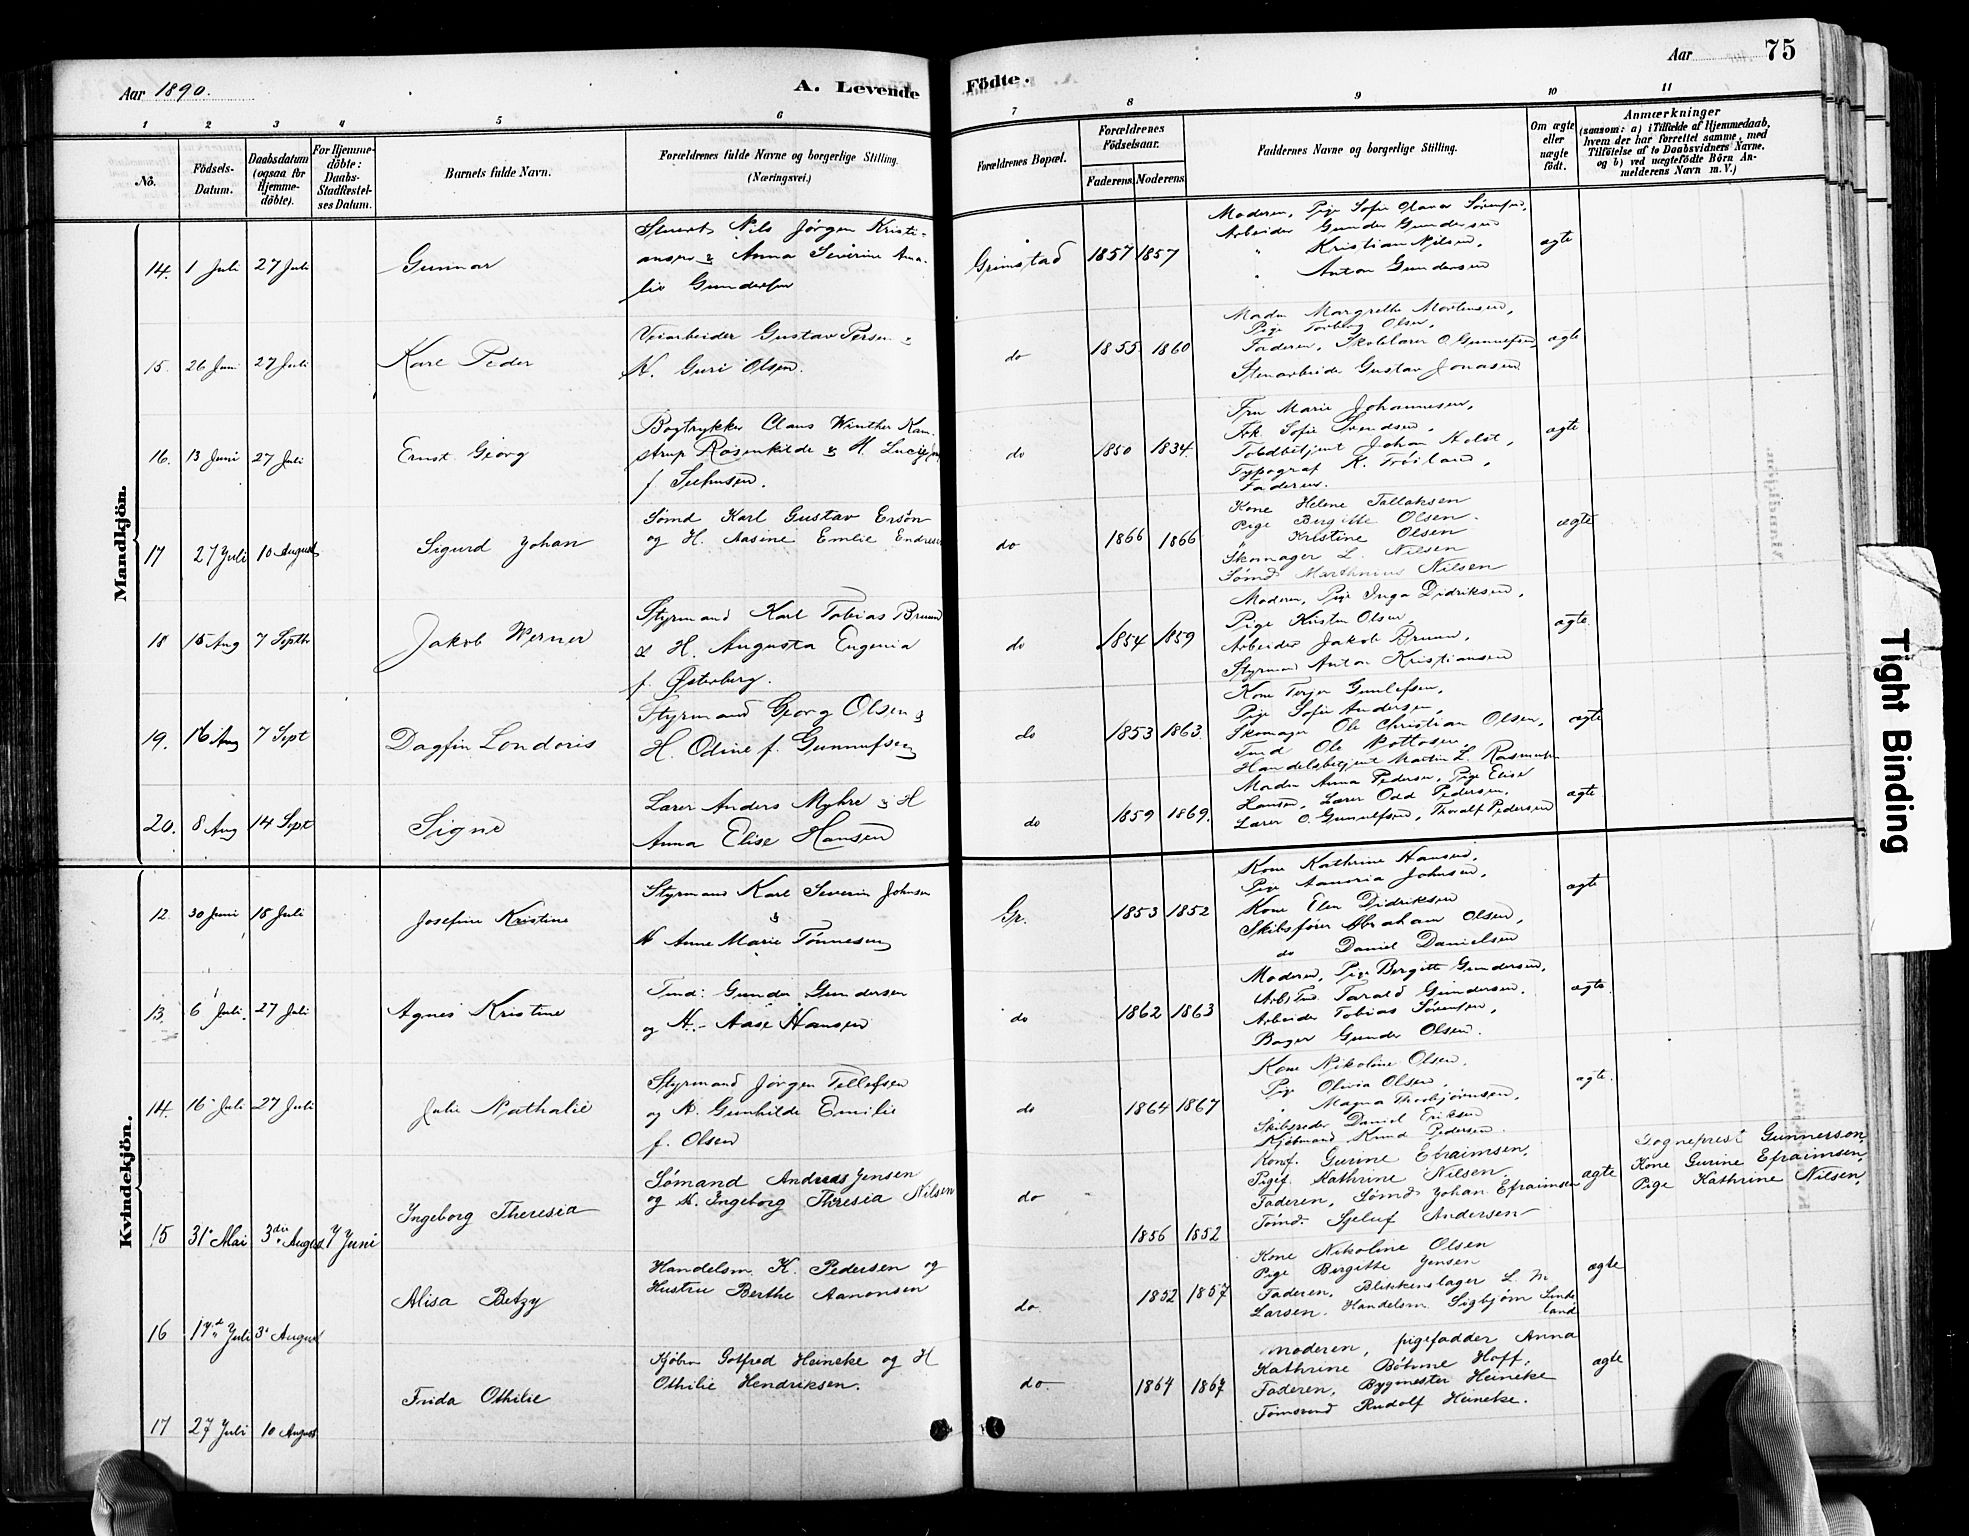 Aar 1890.
A. Levende Födte.
Aar 75
1 2 3 4 5 6 7 8 9 10 11
No.
Födsels-Datum.
Daabsdatum (ogsaa for Hjemme-döbte).
For Hjemme-döbte: Daabs-Stadfæstel-ses Datum.
Barnets fulde Navn.
Forældrenes fulde Navne og borgerlige Stilling. (Næringsvei.)
Forældrenes Bopæl.
Forældrenes Födselsaar.
Faderens. Moderens.
Faddernes Navne og borgerlige Stilling.
Om ægte eller uægte födt.
Anmærkninger
(saasom: a) i Tilfælde af Hjemmedaab, hvem der har forrettet samme, med Tilföielse af to Daabsvidners Navne, og b) ved uægtefödte Börn An-melderens Navn m. V.)
Mandkjön.
14. 1 Juli 27 Juli Gunnar
Nils Jørgen Kristi-
ansen & Anna Severine Ama-
lie Gundersen
Grimstad 1857 1857
Moderen, Pige Sofie Sørensen,
Arbeider Gunder Gundersen
" Kristian Nilsen,
" Anton Gundersen
ægte
15. 26 Juni 27 Juli Karl Peder
Veiarbeider Gustav Persen &
H. Guri Olsen.
do 1855 1860
Moder Margrethe Mortensen,
Pige Torborg Olsen,
Faderen, Skolelærer O. Gunnufsen,
Stenarbeider Gustav Jonasen
ægte
16. 13 Juni 27 Juli Ernst Georg
Bogtrykker Claus Winther Kam-
strup Rosenkilde & H.
f. Seehusen.
do 1850 1834
Fru Marie Johannesen,
Frk. Sofie Svendsen,
Toldbetjent Johan Holst,
Typograf K. Trøiland,
Faderen.
ægte
17 27 Juli 10 August Sigurd Johan
Sømd Karl Gustav Ersøn
og H. Aasine Emlie
do 1866 1866
Kone Helene Tallaksen
Pige Birgitte Olsen.
" Kristine Olsen
Skomager L. Nilsen
Sømd Marthinius Nilsen
ægte
18 15 Aug 7 Septb Jakob Werner
Styrmand Karl Tobias Bruun
& H. Augusta Eugenia
f. Østerberg.
do 1854 1859
Moderen, Pige Inga Didriksen,
Pige Kirsten Olsen,
Arbeider Jakob Bruun,
Styrmand Anton Kristiansen
ægte
19. 16 Aug 7 Sept Dagfin Londoris
Styrmand Georg Olsen &
H. Odine f. Gunnufsen
do 1853 1863
Kone Terjer Gunlefsen,
Pige Sofie Andersen,
Skomager Ole Christian Olsen,
Tmd Ole
Handelsbetjent Martin L.
ægte
20. 8 Aug 14 Sept Signe
Lærer Anders Myhre & H
Anna Elise Hansen
do 1859 1869.
Moder Anna Pedersen, Pige Elise
Hansen, Lærer Odd Pedersen,
Lærer O. Gunnufsen, Thoralf Pedersen
ægte
Kvindekjön.
12. 30 Juni 18 Juli Josefine Kristine
Styrmand Karl Severin Johnsen
&
H. Anne Marie Tønnesen
Gr. 1853 1852
Kone Kathrine Hansen,
Pige Johnsen,
Kone Elen Didriksen
Skibsfører Abraham Olsen,
do Daniel Danielsen
ægte
13. 6 Juli. 27 Juli Agnes Kristine
Tmd: Gunder Gundersen
og H. Aase Hansen
do 1862 1863
Moderen, Pige Bergitte Gundersen,
Arbsmd. Tarald Gundersen.
Arbeider Tobias Sørensen,
Bager Gunder Olsen.
ægte.
14. 16 Juli 27 Juli Julie Nathalie
Styrmand Jørgen Tellefsen
og H. Gunhilde Emilie
f. Olsen
do 1864 1867
Kone Nikoline Olsen.
Pige Olivia Olsen,
" Magna Thorbjørnsen,
Skibsreder Daniel Eriksen
Kjøbmand Knud Pedersen.
ægte.
15 31te Mai 3die August 7 Juni Ingeborg Theresia
Sømand Andreas Jensen
og H. Ingeborg Theresia Nilsen
do 1856 1852
Konf. Gurine Efraimsen,
Pigef. Kathrine Nilsen
Faderen, Sømd Johan Efraimsen
Tømd. Sjeluf Andersen
ægte
Sogneprest Gunnerson,
Kone Gurine Efraimsen,
Pige Kathrine Nilsen,
16 17de Juli 3 August Alisa Betzy
Handelsm. K. Pedersen og
Hustru Berthe Aanonsen
do. 1852 1857
Kone Nikoline Olsen
Pige Birgitte Jensen
Faderen, Blikkenslager L. M
Larsen. Handelsm. Sigbjørn Linde
land
ægte
17 27 Juli 10 August Frida Othilie
Kjøbm Gotfred Heineke og H
Othilie Hendriksen.
do. 1864 1867
Moderen, pigefadder Anna
Kathrine Bøhme Hoff,
Faderen, Bygmester Heineke
Tømsvend Rudolf Heineke.
ægte
Tight Binding